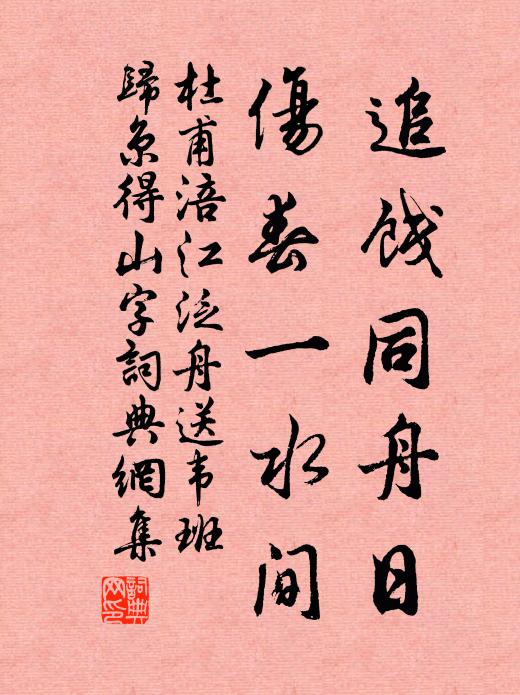 追饯同舟日
傷春一水间
杜甫涪江泛舟送韦班
歸京得山字詞典網集
詞典网印